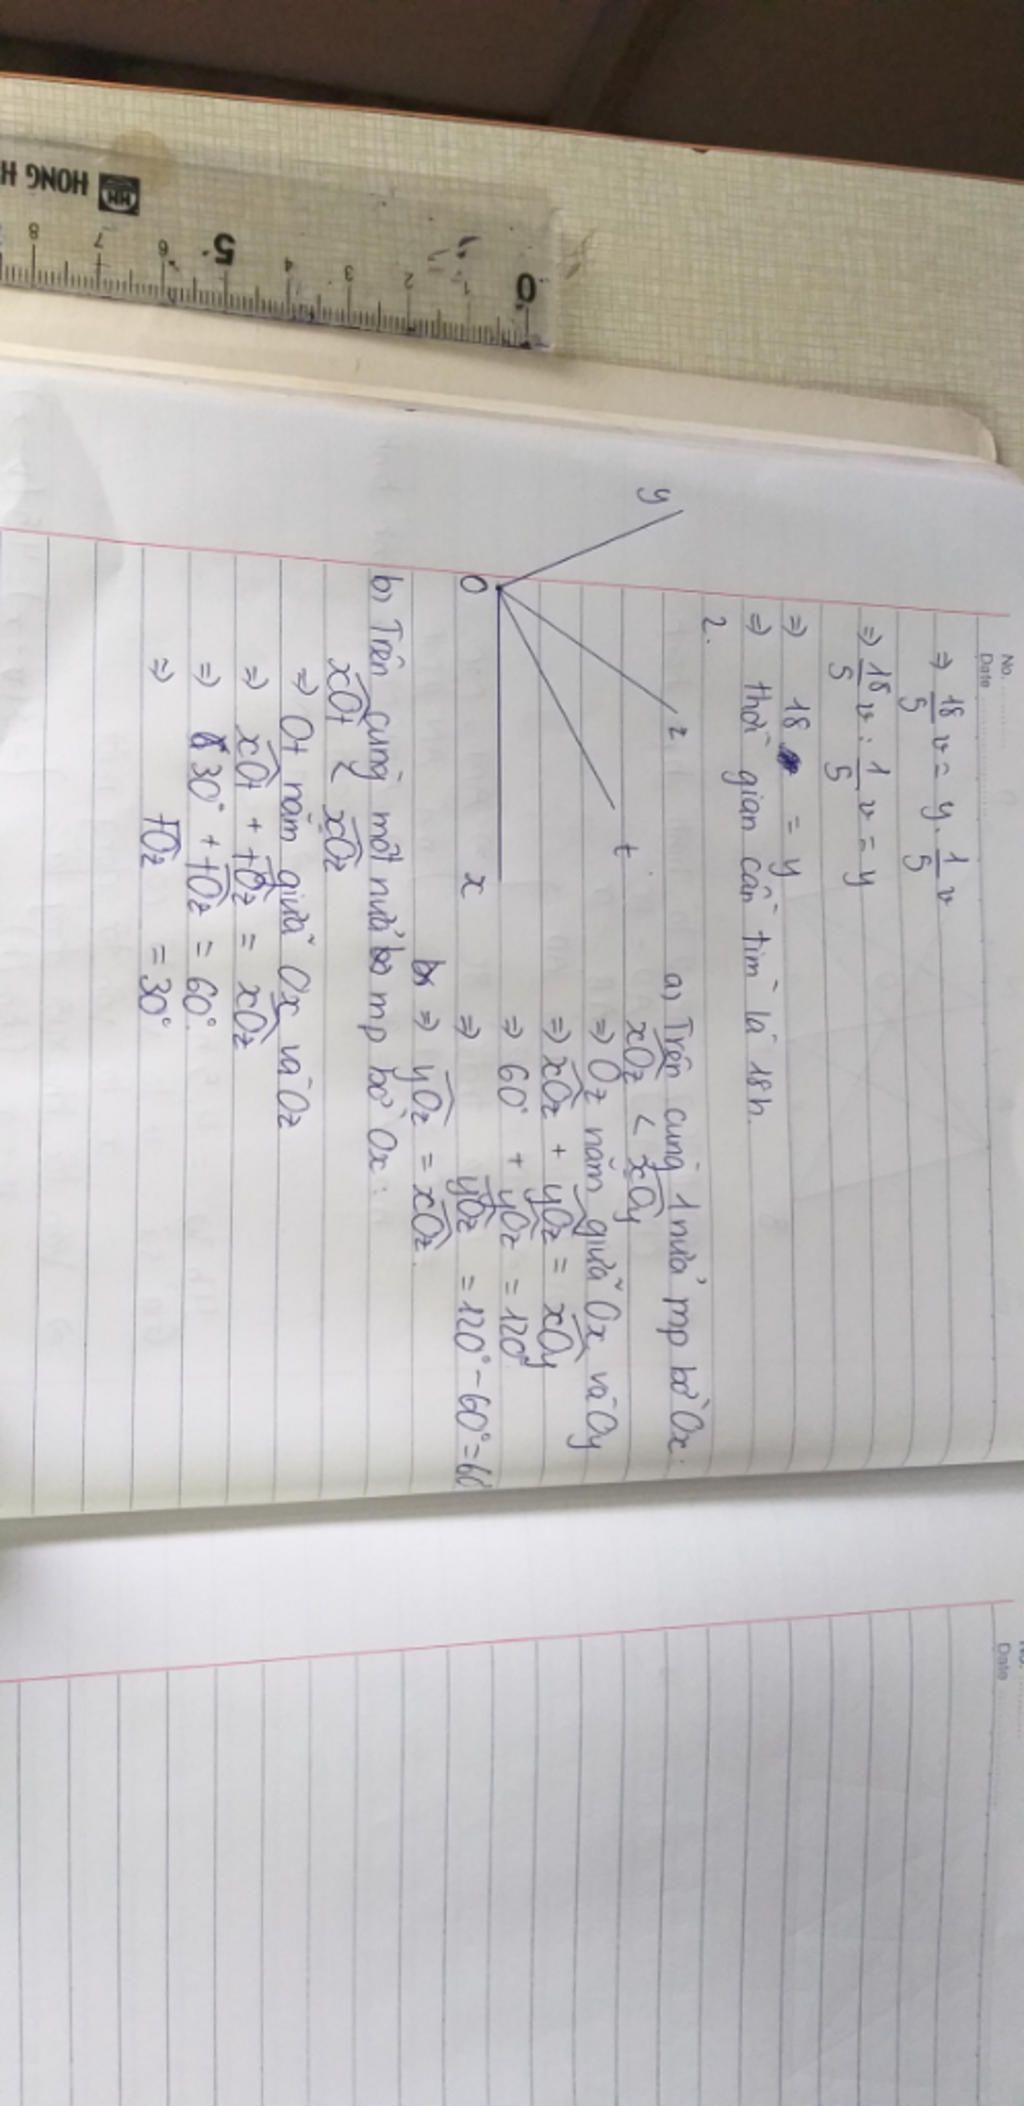 No.
Date
⇒ 18/5 v = y . 1/5 v
⇒ 18/5 v : 1/5 v = y
⇒ 18 = y
⇒ thời gian cần tìm là 18h.
2.
y
z
t
O
x
a) Trên cùng 1 nửa mp bờ Ox.
xOz < xOy
⇒ Oz nằm giữa Ox và Oy
⇒ xOz + yOz = xOy
⇒ 60° + yOz = 120°
⇒ yOz = 120° - 60° = 60
⇒ yOz = xOz.
b) Trên cùng một nửa mp bờ Ox:
xOt < xOz
⇒ Ot nằm giữa Ox và Oz
⇒ xOt + tOz = xOz
⇒ 30° + tOz = 60°
⇒ tOz = 30°
HONG H
HM
0 1 2 3 4 5 6 7 8
Date